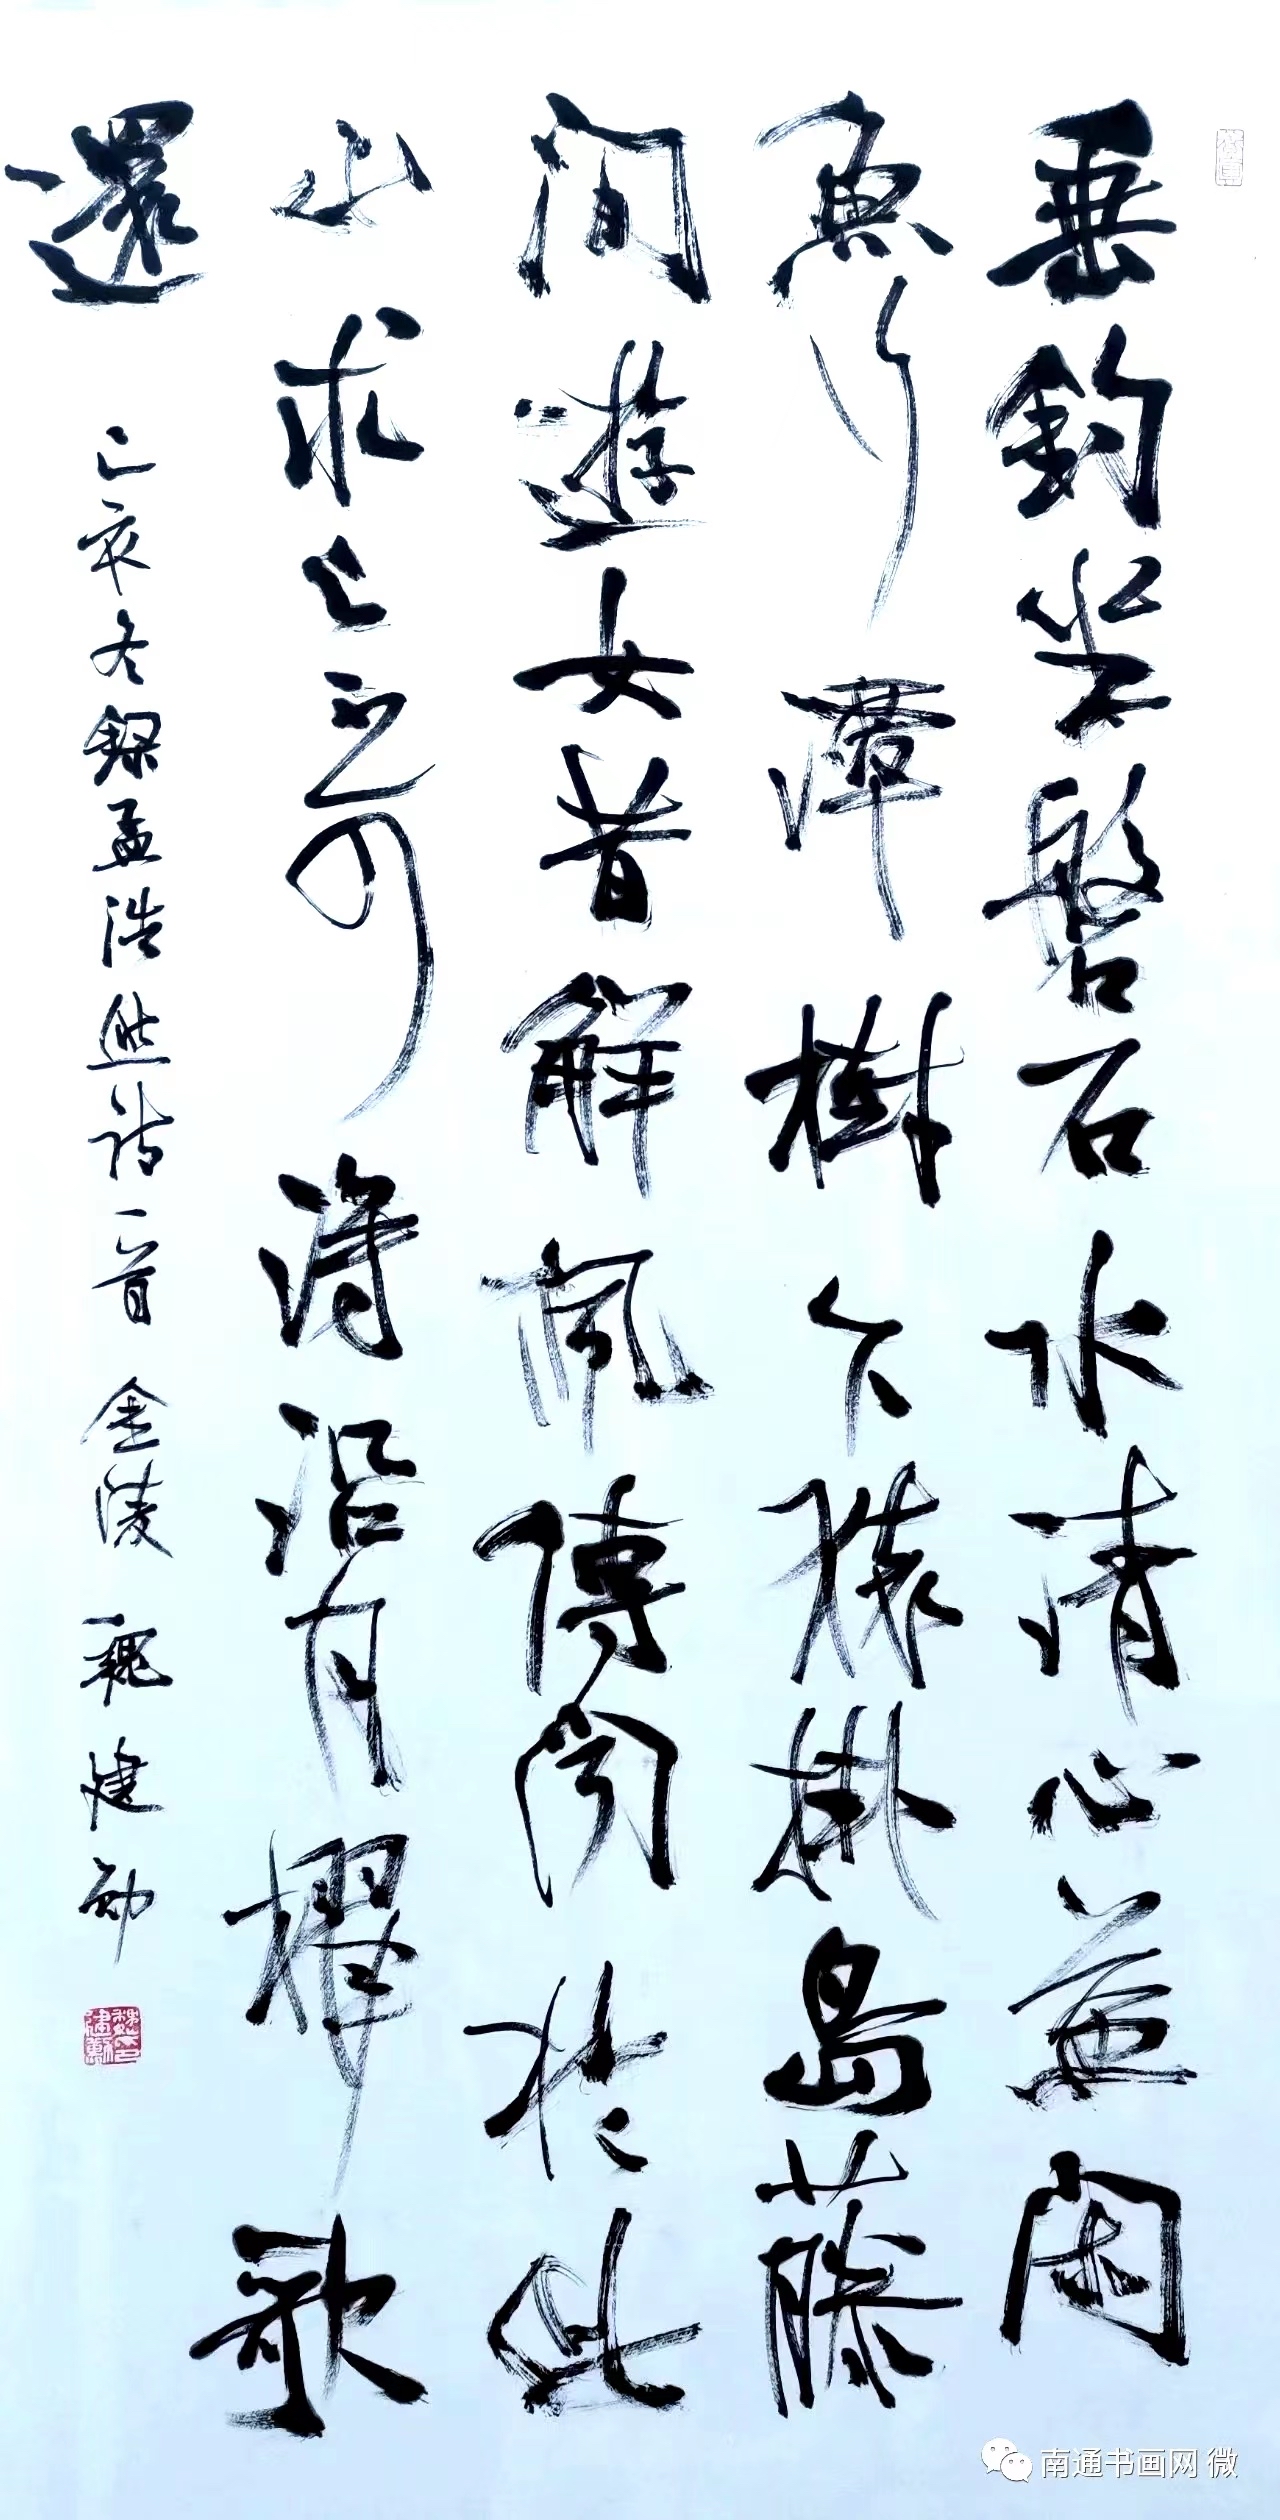 垂釣坐磐石水清心益閑
魚行潭樹下猿掛島藤
間遊女昔解佩傳聞於此
山求之不可得沿月櫂歌
還
己亥冬錄孟浩然詩一首 金陵 魏建勋
南通书画网 微